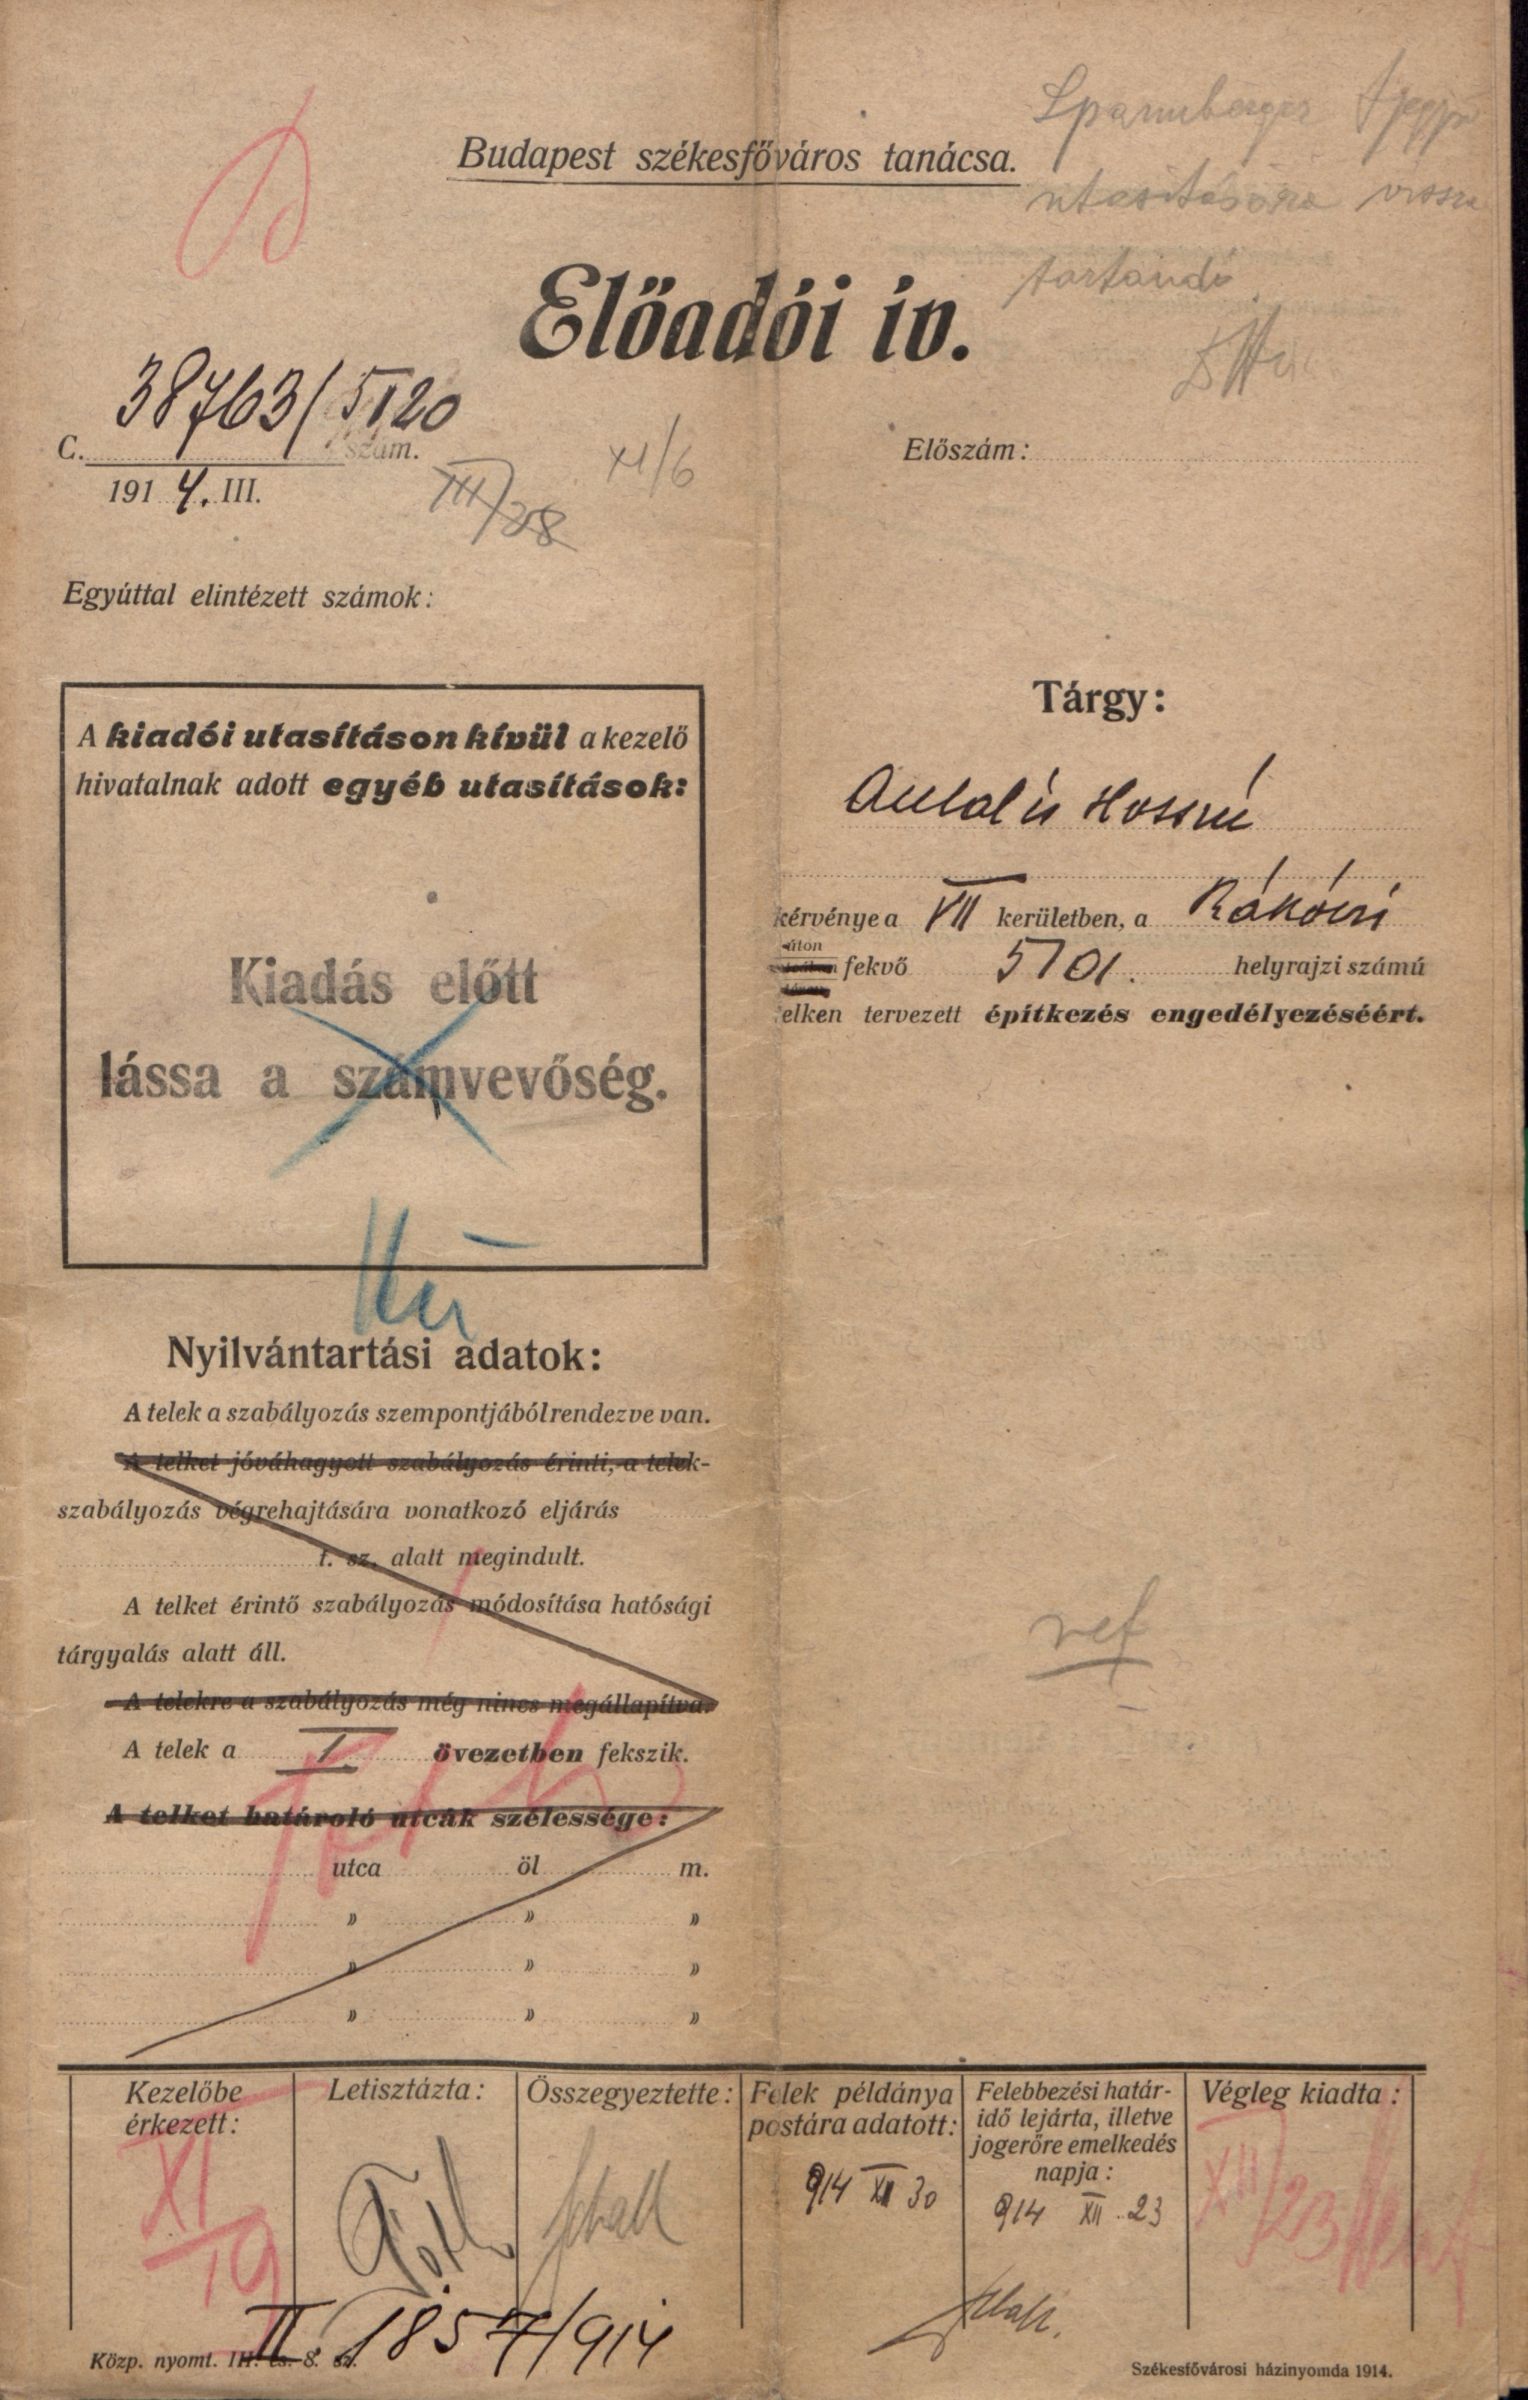 Budapest székesfőváros tanácsa.
utasítására vissza
tartandó
Előadói ív.
38763/5120
C. szám.
1914. III.
XII/28
XI/6
Előszám:
Egyúttal elintézett számok:
A kiadói utasításon kívül a kezelő
hivatalnak adott egyéb utasítások:
Kiadás előtt
lássa a számvevőség.
Tárgy:
Antal és Hossú
kérvénye a VII kerületben, a Rákóczi
úton
fekvő 5701. helyrajzi számú
elken tervezett építkezés engedélyezéséért.
Nyilvántartási adatok:
A telek a szabályozás szempontjából rendezve van.
A telket jóváhagyott szabályozás érinti, a telek-
szabályozás végrehajtására vonatkozó eljárás
t. sz. alatt megindult.
A telket érintő szabályozás módosítása hatósági
tárgyalás alatt áll.
A telekre a szabályozás még nincs megállapítva.
A telek a I. övezetben fekszik.
A telket határoló utcák szélessége:
utca öl m.
» » »
» » »
» » »
ref
Kezelőbe
érkezett:
XI/19
Letisztázta:
Tóth
Összegyeztette:
Schall
Felek példánya
postára adatott:
914 XII 30
Felebbezési határ-
idő lejárta, illetve
jogerőre emelkedés
napja:
914 XII 23
Schall.
Végleg kiadta:
XII/23
II. 1857/914
Közp. nyomt. III. cs. 8. sz.
Székesfővárosi házinyomda 1914.